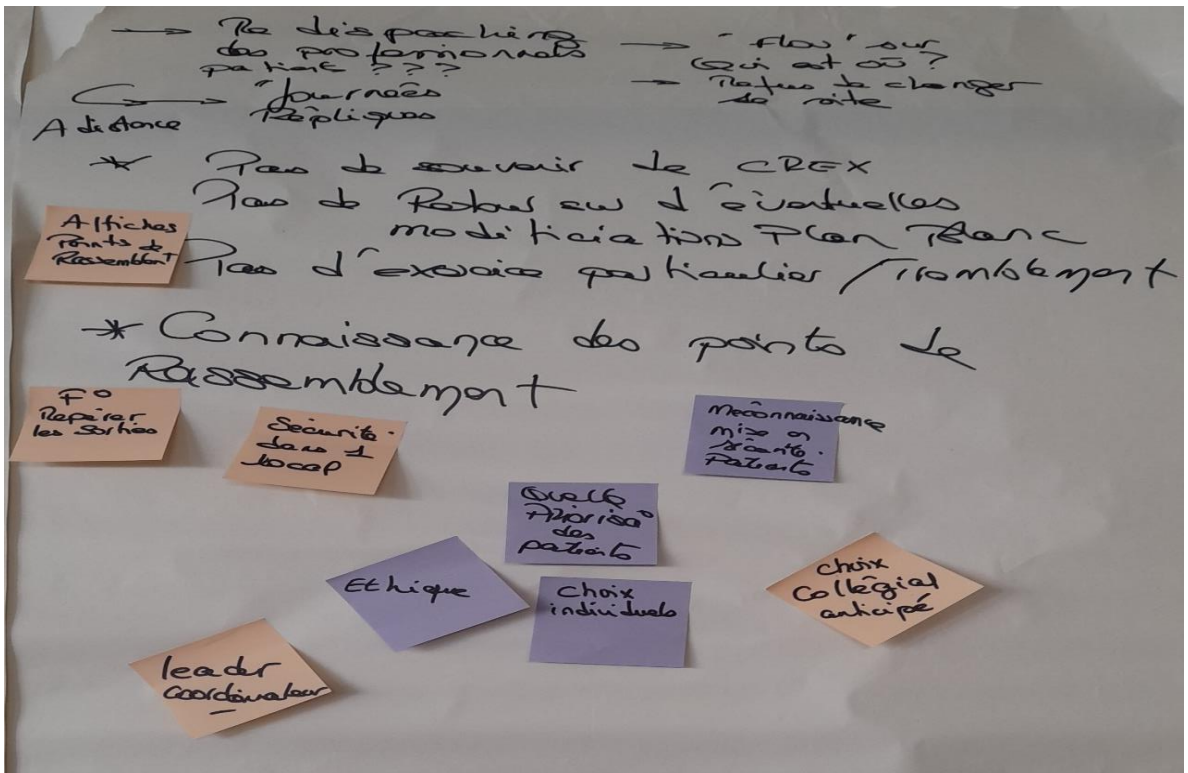 → Re dispaching
des professionnels
patient ???
→ "flou" sur
Qui est où ?
→ Refus de changer
de site
→ Journées
A distance Répliques
* Pas de souvenir de CREX
Pas de Retour sur d'éventuelles
modificiations Plan Blanc
Pas d'exercice particulier / Tremblement
Affiches
Points de
Rassemblt
* Connaissance des points de
Rassemblement
F°
Repérer
les sorties
Sécurité
dans 1
Méconnaissance
mise en
sécurité
Patients
Quelle
Priorisa°
des
patients
Ethique
Choix
individuels
choix
Collégial
anticipé
leader
coordinateur